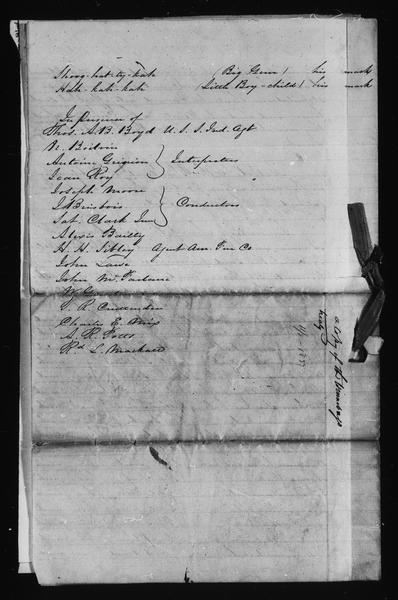 Shoog-hat-ty-kah (Big Gun) his mark
Hah-kah-kah (Little Boy-child) his mark
In Presence of
Thos. A. B. Boyd U. S. S. Ind. Agt
N. Boilvin
Antoine Grignon } Interpreters
Jean Roy
Joseph Moore
J Brisbois } Conductors
Sat. Clark Jun
Alexis Bailly
H. H. Sibley Agent Am. Fur Co
John Lawe
John
W.
T. R. Cruttenden
Charles E. Mix
A. R. Potts
Rd L. Mackall
a copy of the Winnebago
treaty
1837